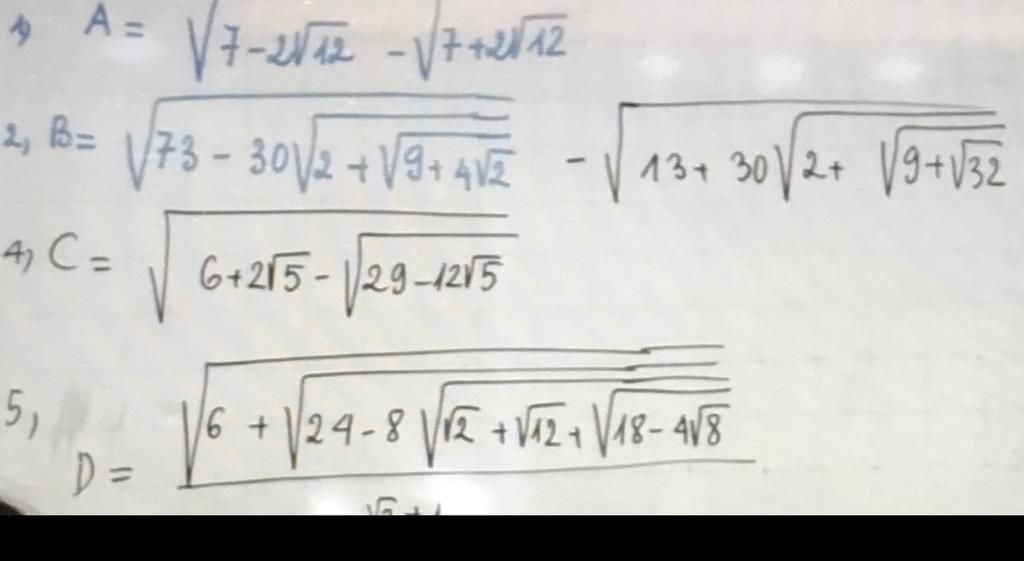 1) A = √(7-2√12) - √(7+2√12)
2, B = √(73 - 30√(2 + √(9 + 4√2))) - √(13 + 30√(2 + √(9 + √32)))
4) C = √(6+2√5 - √(29-12√5))
5, D = √(6 + √(24 - 8√(√2 + √12 + √(18 - 4√8))))